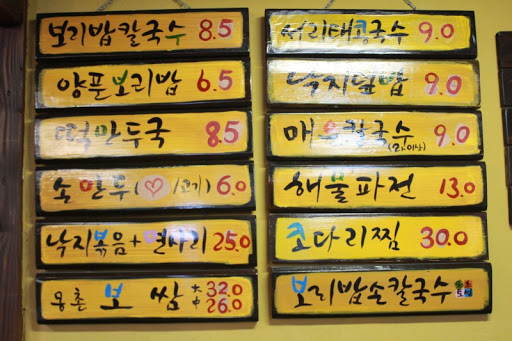 보리밥칼국수 8.5
양푼보리밥 6.5
떡만두국 8.5
손만두(♡/고기) 6.0
낙지볶음+면사리 25.0
용촌 보쌈 大 32.0
中 26.0
서리태콩국수 9.0
낙지덮밥 9.0
매운칼국수 9.0
(2인이상)
해물파전 13.0
코다리찜 30.0
보리밥손칼국수